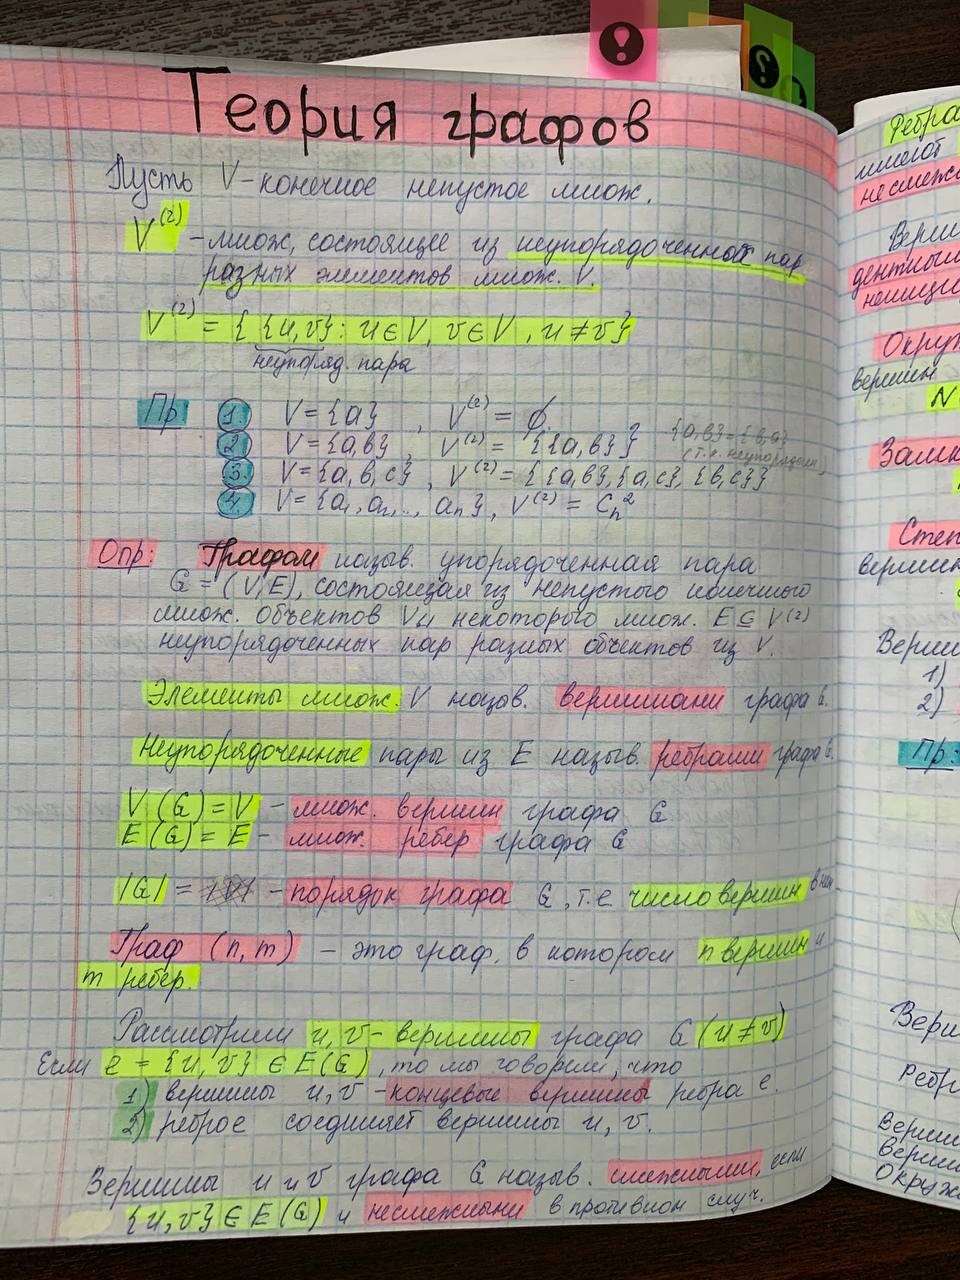 Теория графов
Пусть V - конечное непустое множ.
V⁽²⁾ - множ, состоящее из неупорядоченной пар
разных элементов множ. V.
V⁽²⁾ = { {u, v} : u ∈ V, v ∈ V, u ≠ v }
неупоряд. пара
Пр 1. V = {a} , V⁽²⁾ = ∅.
2. V = {a,b} , V⁽²⁾ = {{a,b}} {a,b} = {b,a}
(т.к. неупорядочен)
3. V = {a, b, c} , V⁽²⁾ = {{a,b},{a,c},{b,c}}
4. V = {a₁, a₂, .., aₙ} , V⁽²⁾ = Cₙ²
Опр: Графом назыв. упорядоченная пара
G = (V, E), состоящая из непустого конечного
множ. объектов V и некоторого множ. E ⊆ V⁽²⁾
неупорядоченных пар разных объектов из V.
Элементы множ. V назыв. вершинами графа G.
Неупорядоченные пары из E назыв. ребрами графа G.
V(G) = V - множ. вершин графа G
E(G) = E - множ. ребер графа G
|G| = - порядок графа G, т.е число вершин в нем
Граф (n, m) - это граф, в котором n вершин и
m ребер.
Рассмотрим u, v - вершины графа G (u ≠ v)
Если e = {u, v} ∈ E(G), то мы говорим, что
1) вершины u, v - концевые вершины ребра e.
2) ребро e соединяет вершины u, v.
Вершины u и v графа G назыв. смежными, если
{u, v} ∈ E(G) и несмежными в противном случ.
Ребра
имеют
несмеж
Верш
дентным
неинци
Окруж
вершин
N
Замк
Степ
вершин
Верши
1)
2)
Пр:
Верш
Ребр
Верши
Верши
Окруж